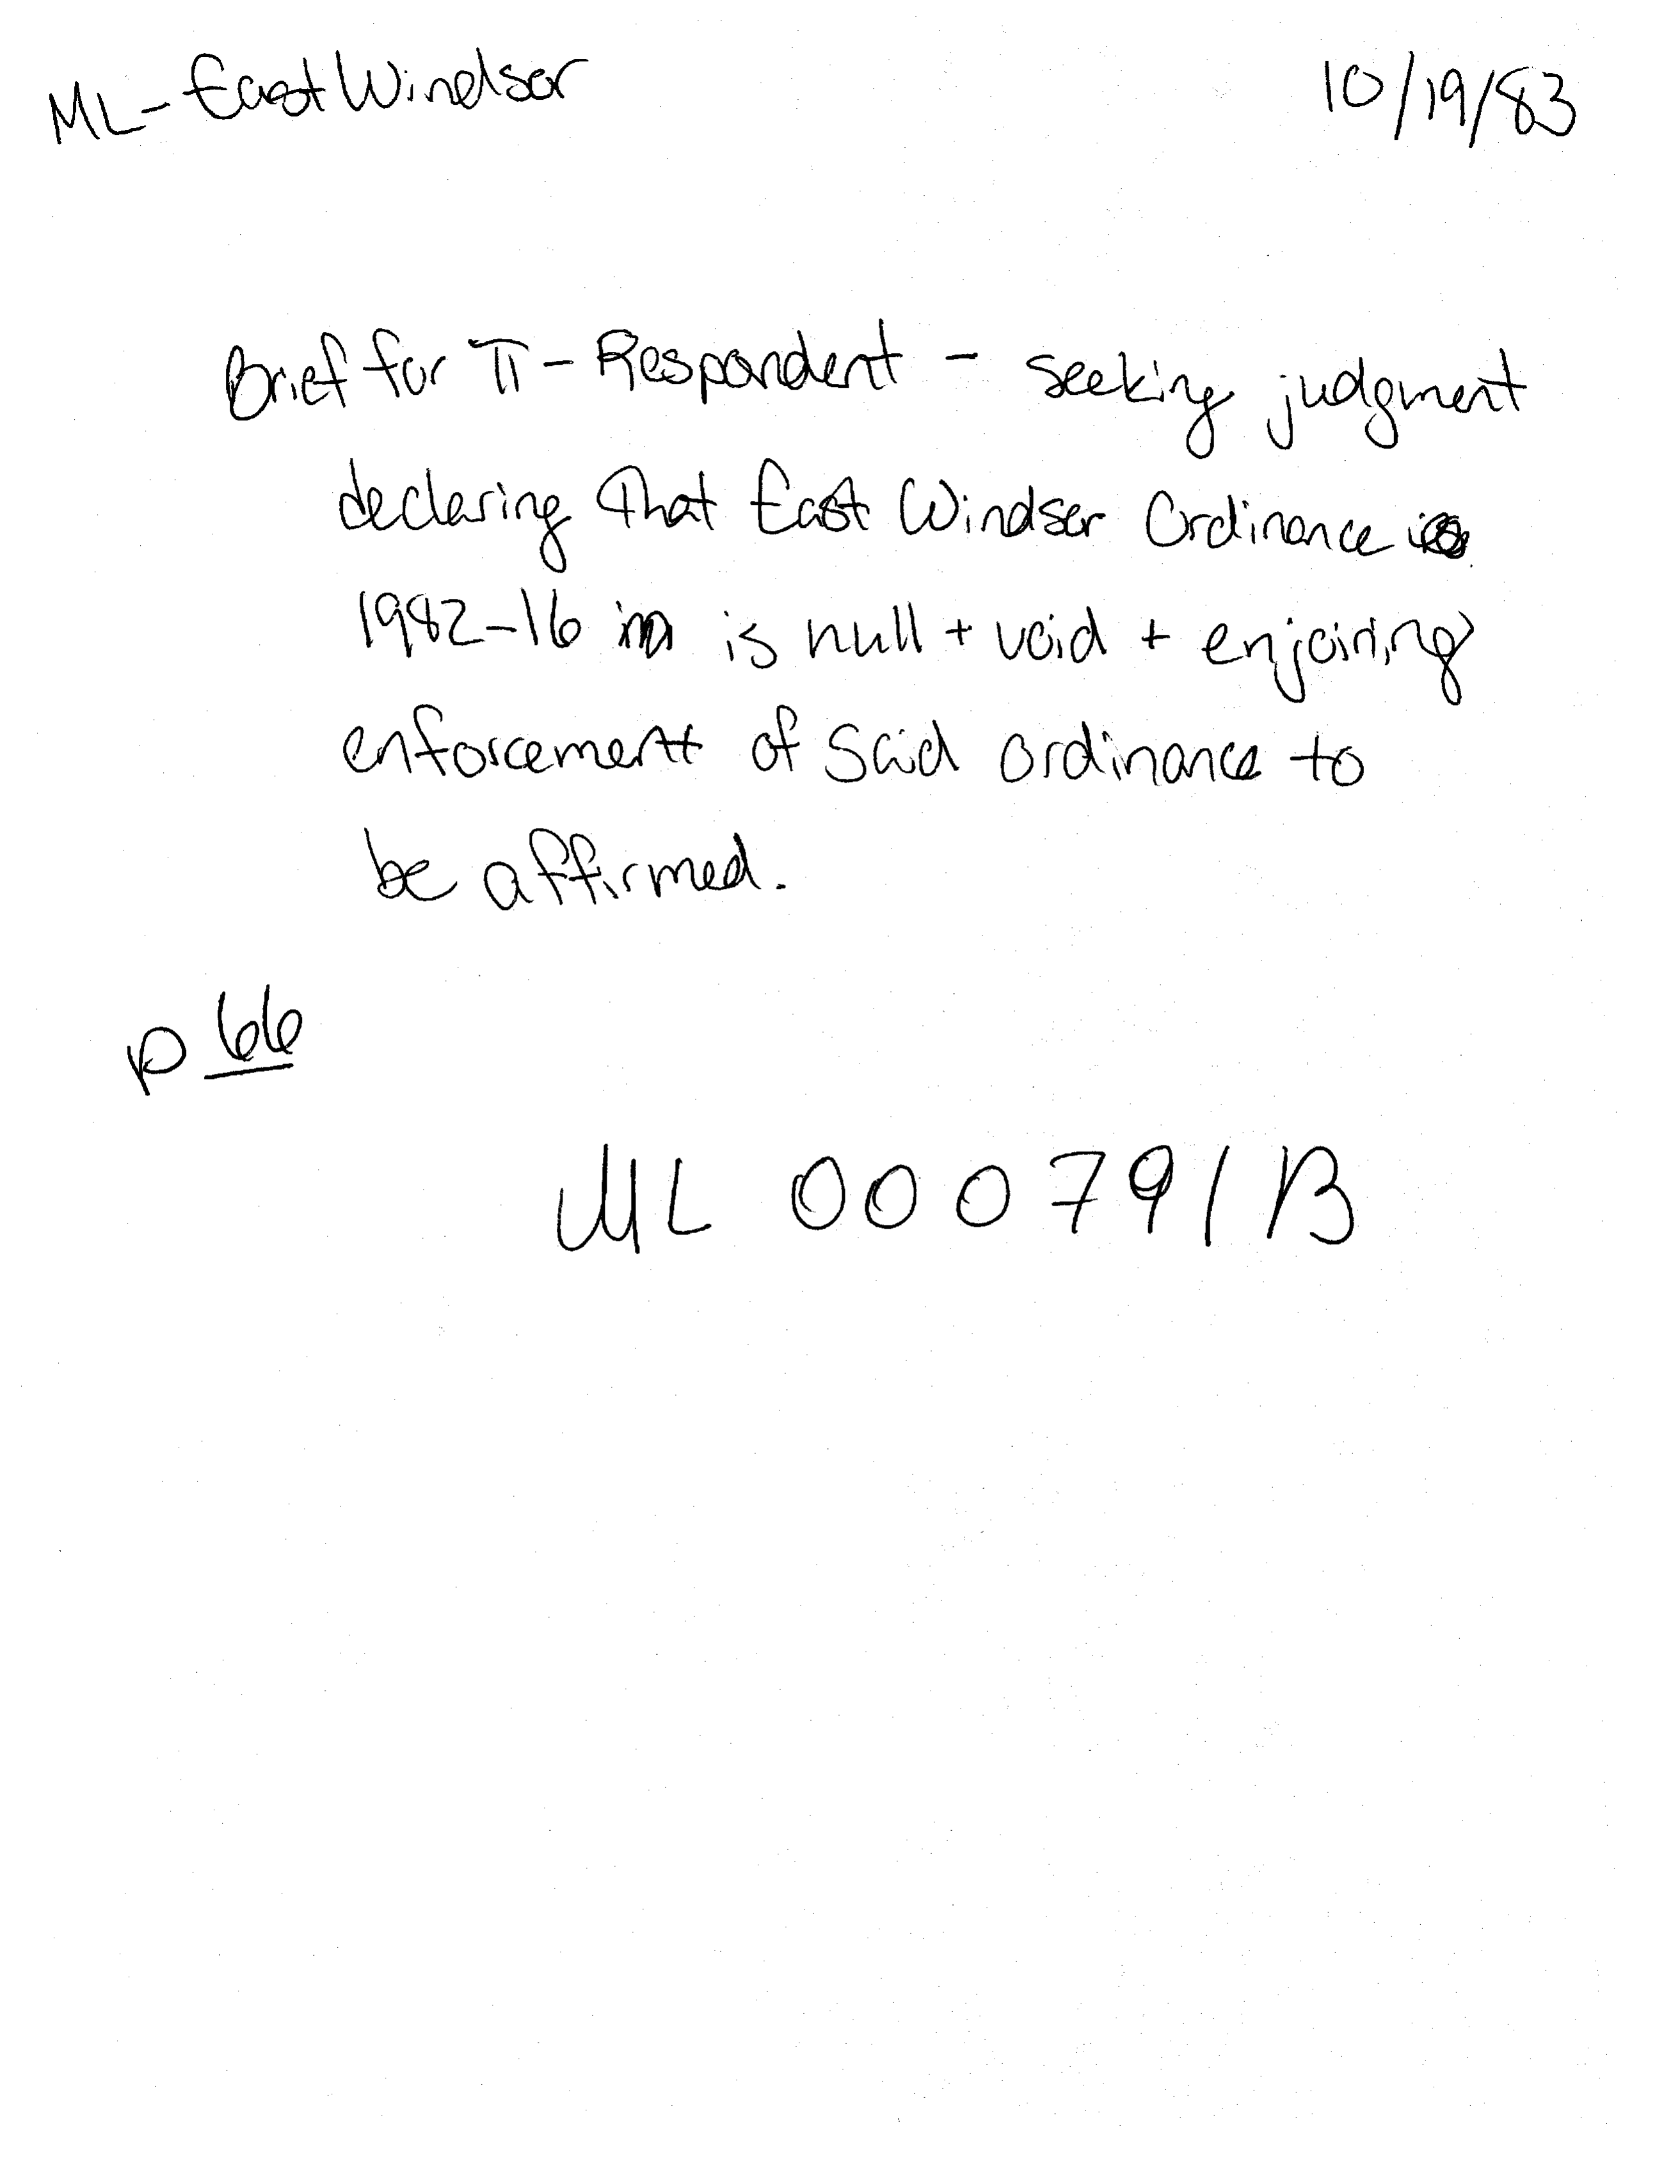 ML - East Windsor 10/19/83
Brief for π - Respondent - seeking judgment
declaring that East Windsor Ordinance
1982-16 is null + void + enjoining
enforcement of said ordinance to
be affirmed.
p 66
ML 000791B